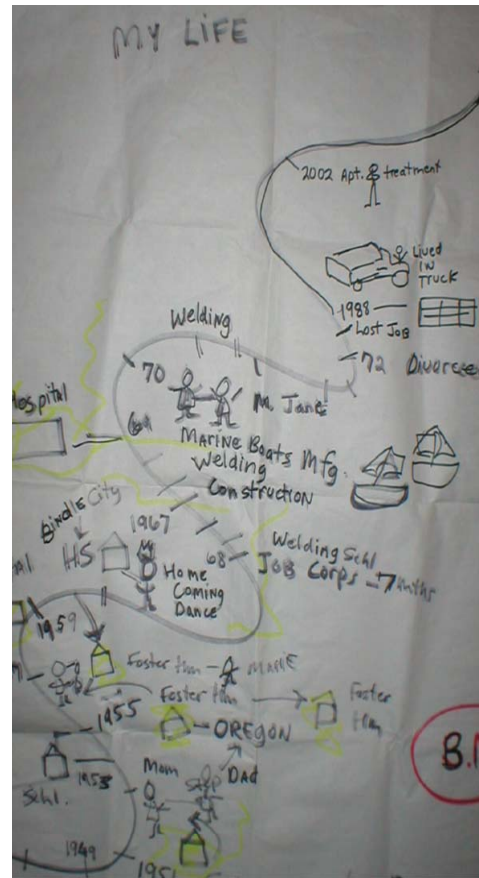 MY LiFE
2002 Apt. & treatment
Lived
IN
TRUCK
1988
Lost Job
Welding
72 Divorce
70
M. Jane
Hospital
Marine Boats Mfg.
Welding
Construction
City
1967
HS
Home
Coming
Dance
68
Welding Schl
JOB CORPS - 7 mnths
1959
Foster Hm - MARIE
Foster Hm
Foster
Hm
1955
OREGON
Mom
Step DAD
1953
Schl.
1949
195
B.